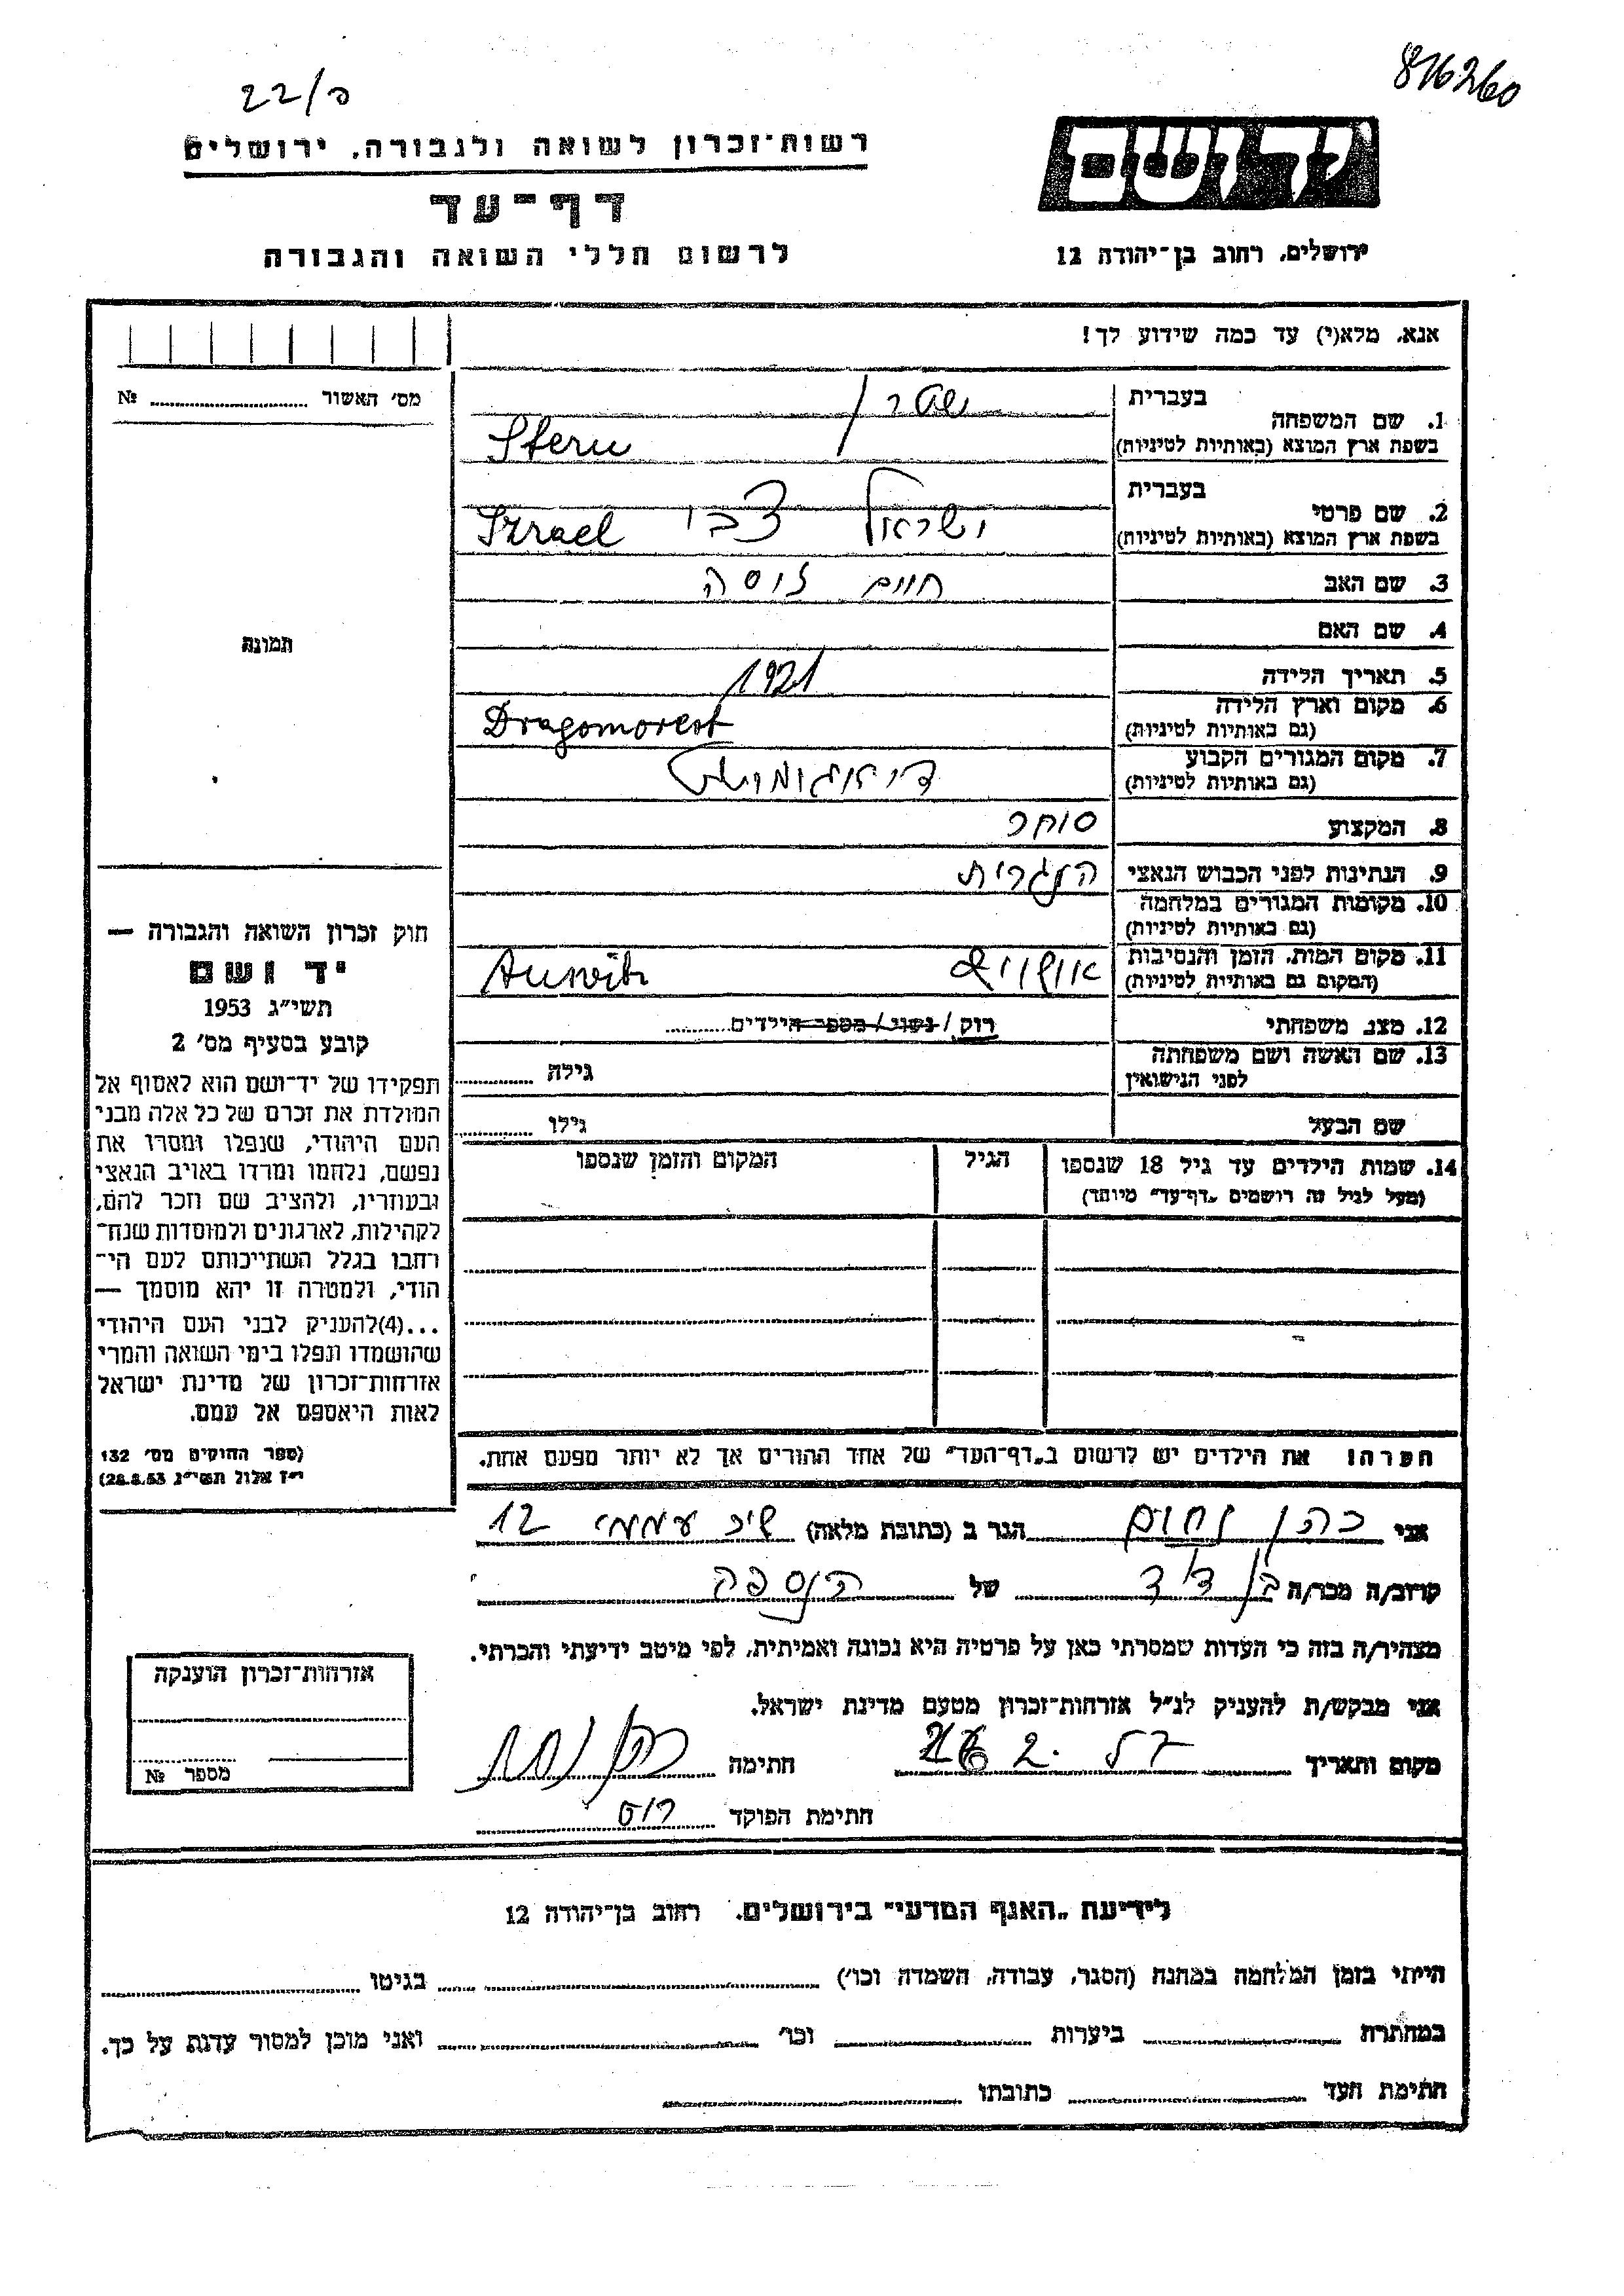 816260
22/ס
רשות־זכרון לשואה ולגבורה, ירושלים
דף־עד
לרשום חללי השואה והגבורה
יד ושם
ירושלים, רחוב בן־יהודה 12
אנא, מלא(י) עד כמה שידוע לך!
מס׳ האשור № 
1. שם המשפחה
בעברית
שטרן
בשפת ארץ המוצא (באותיות לטיניות)
Stern
2. שם פרטי
בעברית
ישראל צבי
בשפת ארץ המוצא (באותיות לטיניות)
Izrael
3. שם האב חיים
4. שם האם
5. תאריך הלידה 1921
6. מקום וארץ הלידה
(גם באותיות לטיניות)
Dragomorest
7. מקום המגורים הקבוע
(גם באותיות לטיניות)
8. המקצוע סוחר
9. הנתינות לפני הכבוש הנאצי הנגרית
10. מקומות המגורים במלחמה
(גם באותיות לטיניות)
11. מקום המות, הזמן והנסיבות
(המקום גם באותיות לטיניות)
אושויץ Auswitz
12. מצב משפחתי רוק / נשוי / מספר הילדים
13. שם האשה ושם משפחתה
לפני הנישואין
גילה
שם הבעל גילו
14. שמות הילדים עד גיל 18 שנספו
(מעל לגיל זה רושמים „דף־עד״ מיוחד)
הגיל
המקום והזמן שנספו
תמונה
חוק זכרון השואה והגבורה —
יד ושם
תשי״ג 1953
קובע בסעיף מס׳ 2
תפקידו של יד־ושם הוא לאסוף אל
המולדת את זכרם של כל אלה מבני
העם היהודי, שנפלו ומסרו את
נפשם, נלחמו ומרדו באויב הנאצי
ובעוזריו, ולהציב שם וזכר להם,
לקהילות, לארגונים ולמוסדות שנח־
רחבו בגלל השתייכותם לעם הי־
הודי, ולמטרה זו יהא מוסמך —
...(4)להעניק לבני העם היהודי
שהושמדו ונפלו בימי השואה והמרי
אזרחות־זכרון של מדינת ישראל
לאות היאספם אל עמם.
(ספר החוקים מס׳ 132
י״ז אלול תשי״ג 28.8.53)
הערה: את הילדים יש לרשום ב„דף־העד״ של אחד ההורים אך לא יותר מפעם אחת.
אני כהן נחום הגר ב (כתובת מלאה) שיכ עממי 12
קרוב/ה מכר/ה בן דוד של הנספה
מצהיר/ה בזה כי העדות שמסרתי כאן על פרטיה היא נכונה ואמיתית, לפי מיטב ידיעתי והכרתי.
אני מבקש/ת להעניק לנ״ל אזרחות־זכרון מטעם מדינת ישראל.
מקום ותאריך חתימה
חתימת הפוקד
אזרחות־זכרון הוענקה
מספר №
לידיעת „האגף המדעי״ בירושלים, רחוב בן־יהודה 12
הייתי בזמן המלחמה במחנה (הסגר, עבודה, השמדה וכו׳) בגיטו
במחתרת ביערות וכו׳ ואני מוכן למסור עדות על כך.
חתימת העד כתובתו